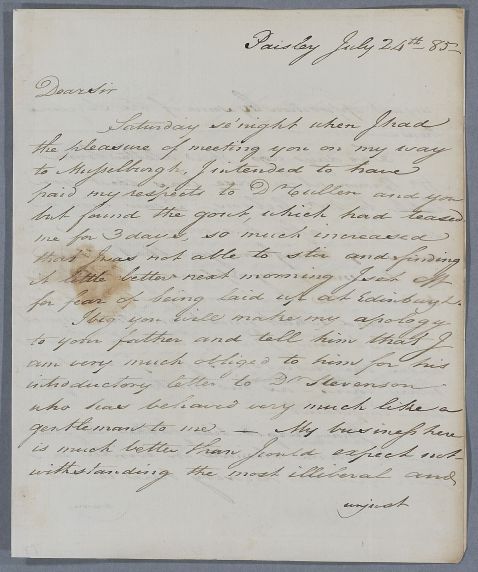 Paisley July 24th 85
Dear Sir
Saturday se'night when I had
the pleasure of meeting you on my way
to Musselburgh, I intended to have
paid my respects to Dr Cullen and you
but found the gout, which had teased
me for 3 days, so much increased
that I was not able to stir and finding
it little better next morning I set off
for fear of being laid up at Edinburgh.
I beg you will make my apology
to your father and tell him that I
am very much obliged to him for his
introductory letter to Dr Stevenson
who has behaved very much like a
gentleman to me. — My business here
is much better than I could expect not-
withstanding the most illiberal and
unjust